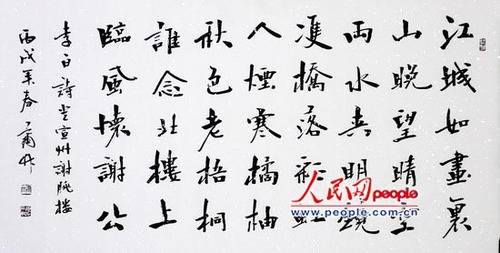 江城如畫裏
山晚望晴空
兩水夹明鏡
雙橋落彩虹
人煙寒橘柚
秋色老梧桐
誰念北樓上
臨風懷謝公
李白詩登宣州謝朓樓
丙戌年春
人民网 people
www.people.com.cn